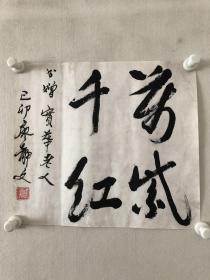 萬紫
千红
书赠宝华老人
己卯康静文